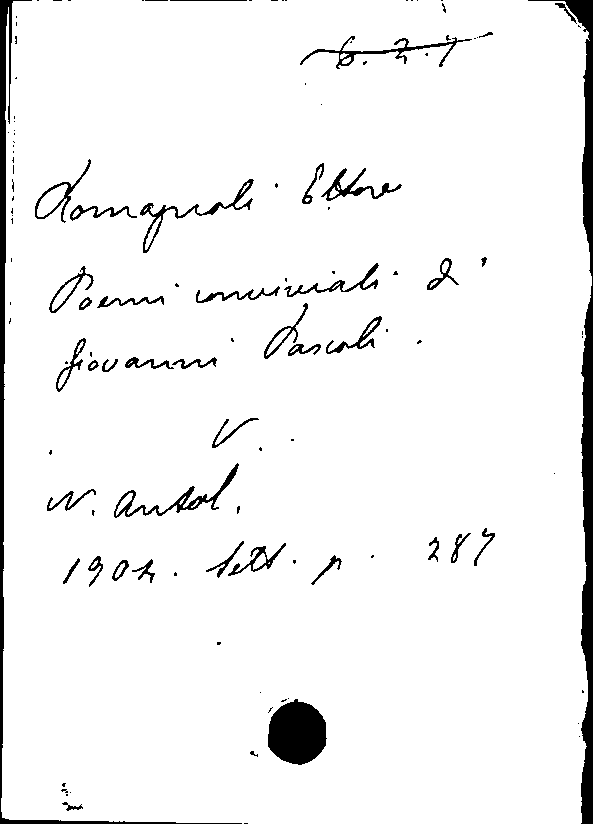 6. 2. 7
Romagnoli Ettore
Poemi conviviali di
Giovanni Pascoli.
V.
N. Antol.
1904. Sett. p. 287